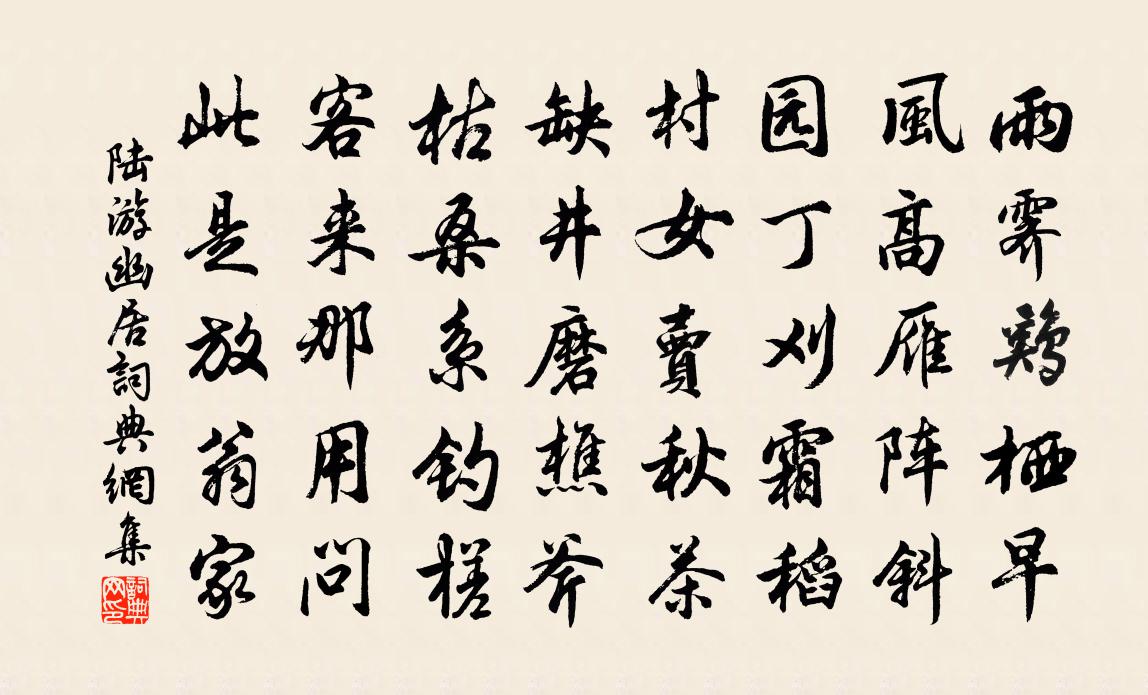 雨霁鷄栖早
風高雁阵斜
园丁刈霜稻
村女賣秋茶
缺井磨樵斧
枯桑系钓槎
客来那用问
此是放翁家
陆游幽居詞典網集
詞典网印